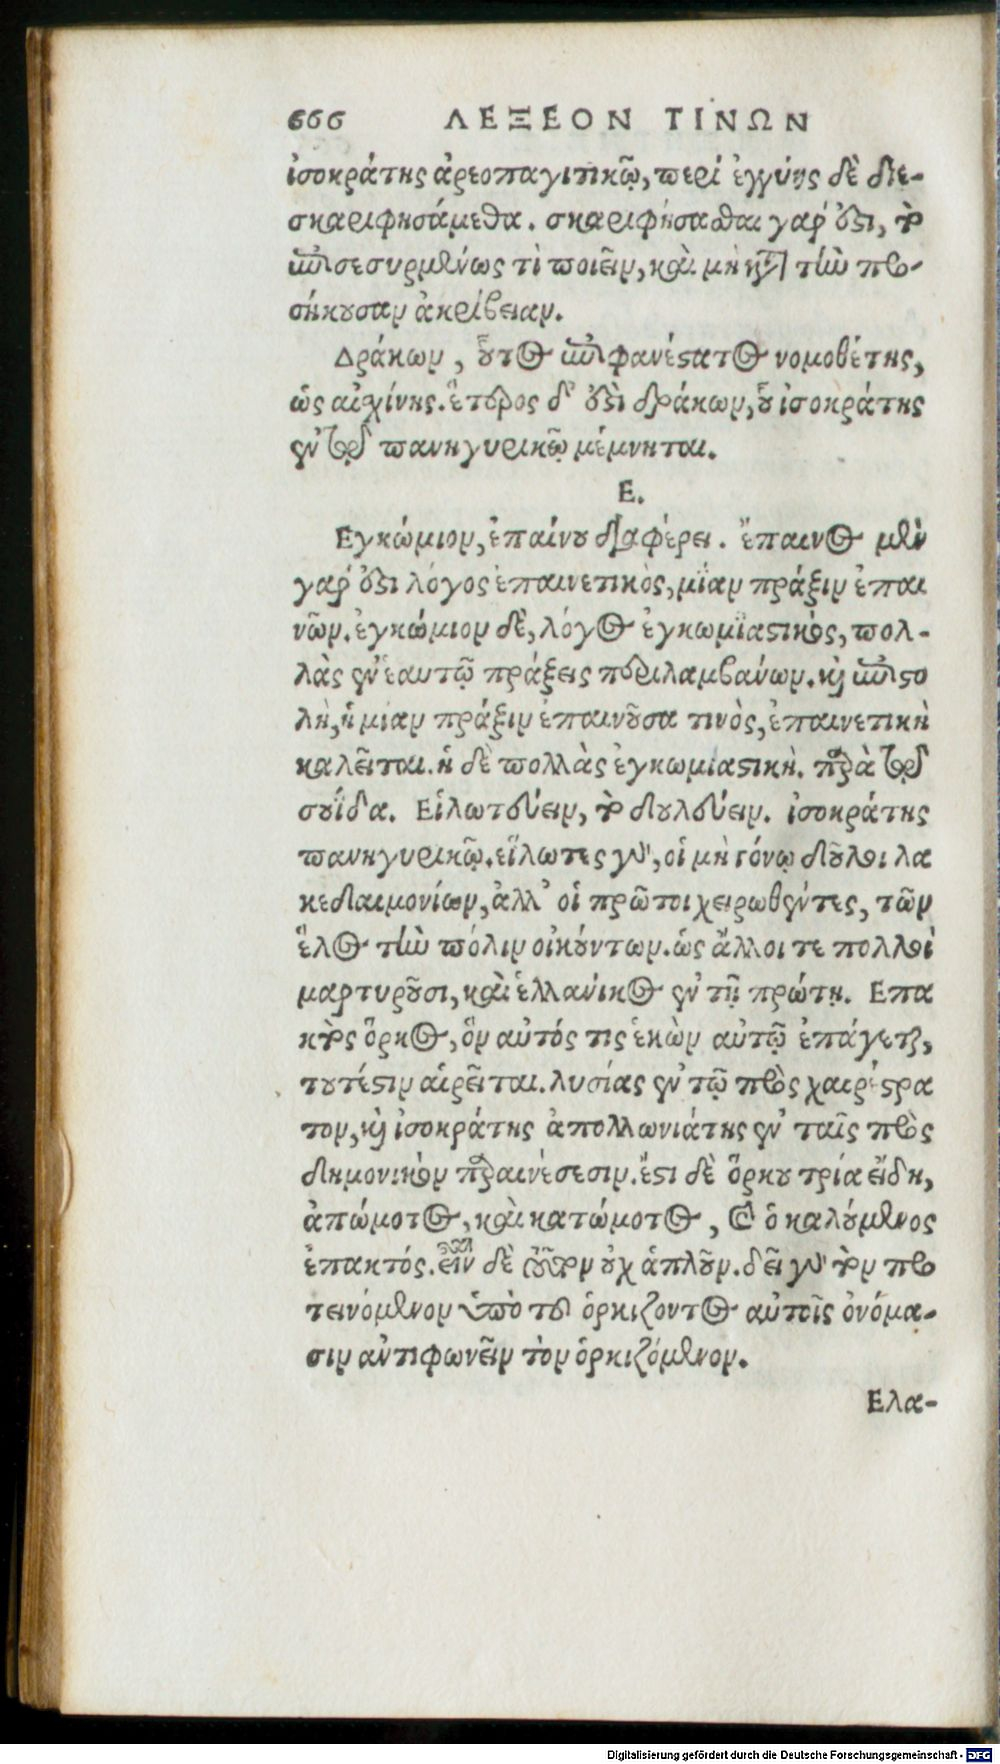 666 ΛΕΞΕΟΝ ΤΙΝΩΝ
ἰσοκράτης ἀρεοπαγιτικῷ, περὶ ἐγγύης δὲ διε-
σκαριφησάμεθα. σκαριφήσασθαι γάρ ὅστι, τὸ
ἐπισεσυρμένως τὶ ποιεῖν, καὶ μὴ κατὰ τὴν προ-
σήκουσαν ἀκρίβειαν.
Δράκων, οὗτος ἐπιφανέστατος νομοθέτης,
ὡς αἰσχίνης. ἕτερος δ' ἐστὶ δράκων, οὗ ἰσοκράτης
ἐν τῷ πανηγυρικῷ μέμνηται.
Ε.
Εγκώμιον, ἐπαίνου διαφέρει. ἔπαινος μὲν
γάρ ἐστι λόγος ἐπαινετικὸς, μίαν πράξιν ἐπαι
νῶν. ἐγκώμιον δὲ, λόγος ἐγκωμιαστικὸς, πολ-
λὰς ἐν ἑαυτῷ πράξεις περιλαμβάνων. καὶ ἐπιστο
λὴ, ἡ μίαν πράξιν ἐπαινοῦσα τινὸς, ἐπαινετικὴ
καλεῖται. ἡ δὲ πολλὰς ἐγκωμιαστικὴ. παρὰ τῷ
σουΐδα. Εἱλωτεύειν, τὸ δουλεύειν. ἰσοκράτης
πανηγυρικῷ. εἵλωτες γὰρ, οἱ μὴ γόνῳ δοῦλοι λα
κεδαιμονίων, ἀλλ' οἱ πρῶτοι χειρωθέντες, τῶν
ἕλος τὴν πόλιν οἰκούντων. ὡς ἄλλοι τε πολλοὶ
μαρτυροῦσι, καὶ ἑλλανίκος ἐν τῇ πρώτῃ. Επα
κτὸς ὅρκος, ὃν αὐτός τις ἑκὼν αὐτῷ ἐπάγεται,
τουτέστιν αἱρεῖται. λυσίας ἐν τῷ πρὸς χαιρέστρα
τον, καὶ ἰσοκράτης ἀπολλωνιάτης ἐν ταῖς πρὸς
δημονικὸν παραινέσεσιν. ἔστι δὲ ὅρκου τρία εἴδη,
ἀπώμοτος, καὶ κατώμοτος, καὶ ὁ καλούμενος
ἐπακτός. εἶναι δὲ τοῦτον οὐχ ἁπλοῦν. δεῖ γὰρ τὸν προ
τεινόμενον ὑπὸ τοῦ ὁρκίζοντος αὐτοῖς ὀνόμα-
σιν ἀντιφωνεῖν τὸν ὁρκιζόμενον.
Ελα-
Digitalisierung gefördert durch die Deutsche Forschungsgemeinschaft - DFG